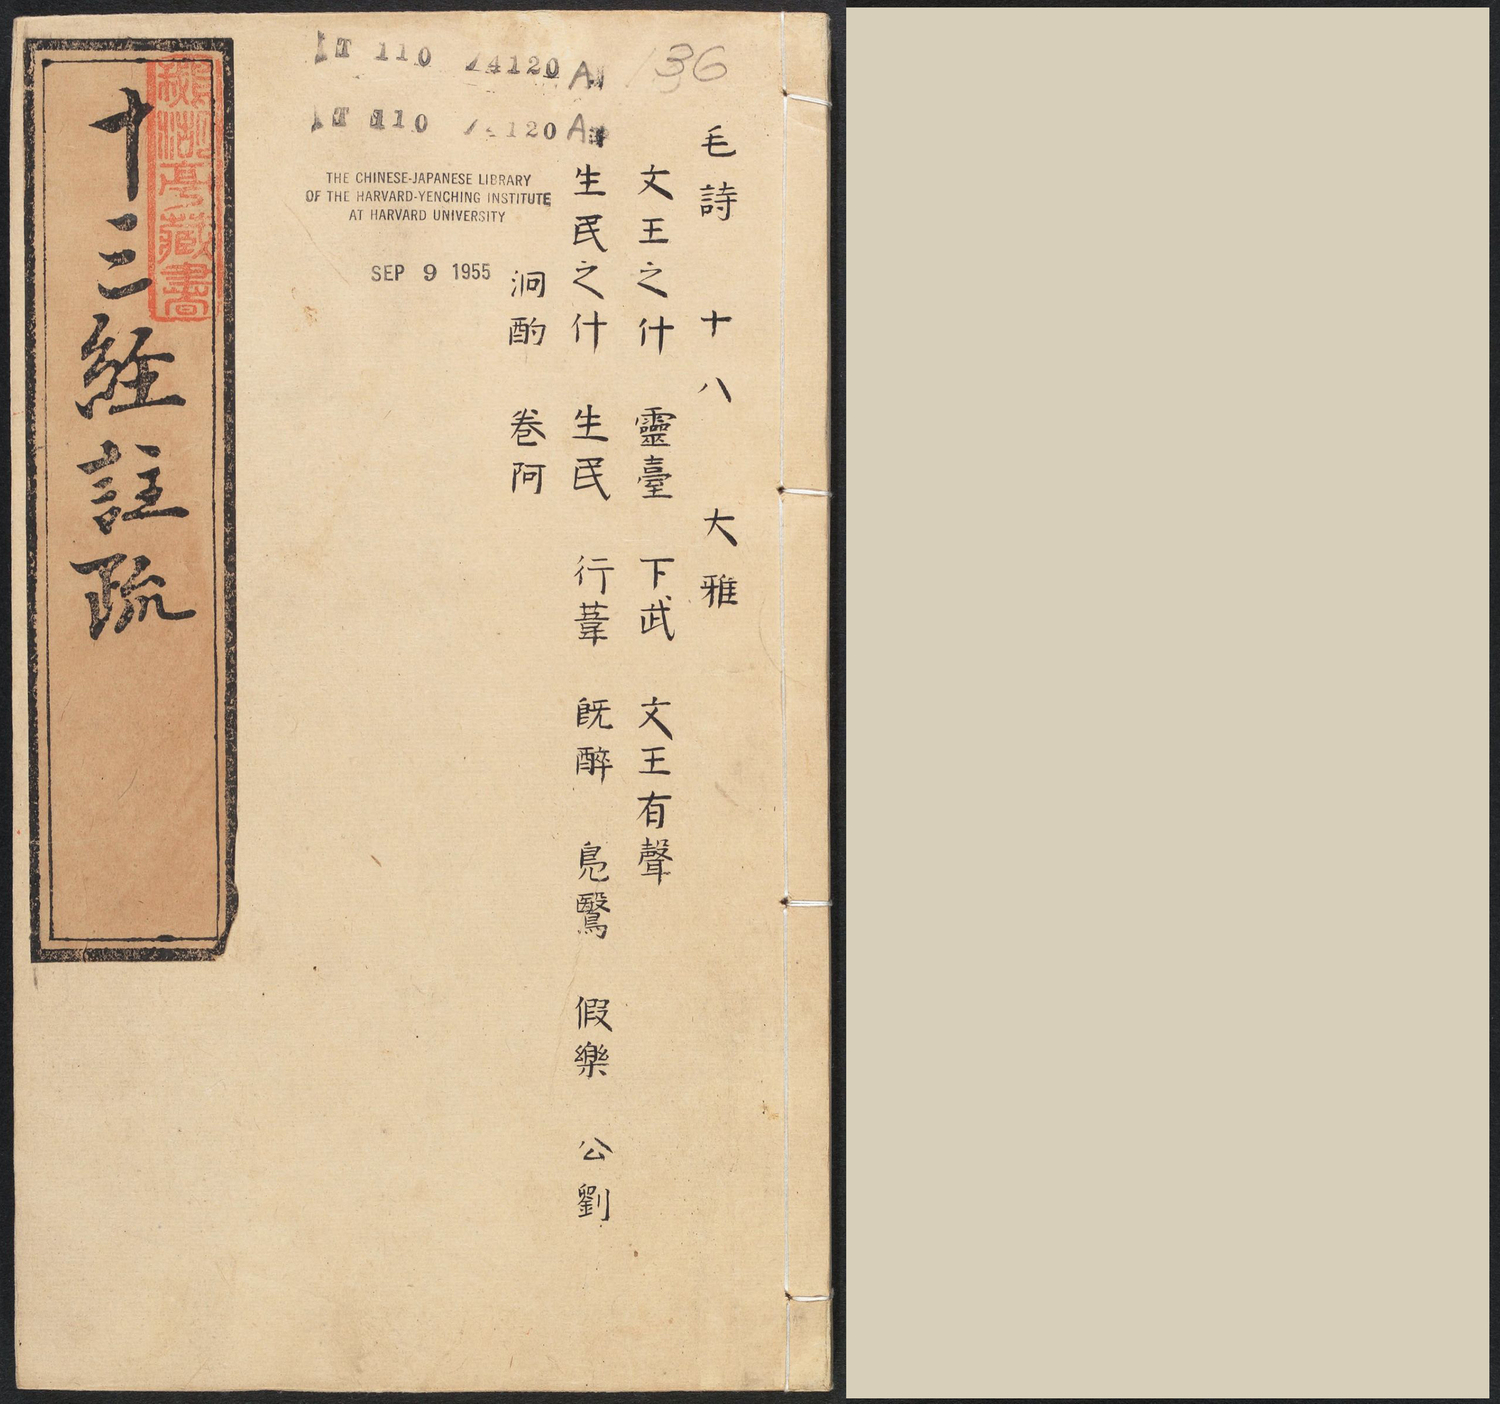 毛詩 十八 大雅
文王之什 靈臺 下武 文王有聲
生民之什 生民 行葦 旣醉 鳧鷖 假樂 公劉
泂酌 卷阿
十三經註疏
T 110 /4120 A
T 110 /4120 A
136
THE CHINESE-JAPANESE LIBRARY
OF THE HARVARD-YENCHING INSTITUTE
AT HARVARD UNIVERSITY
SEP 9 1955
湖亭藏書